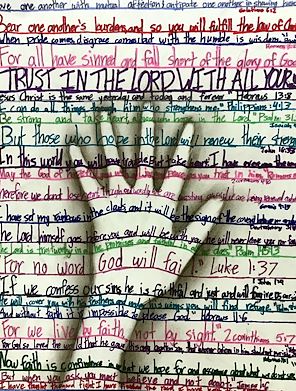 one another with mutual affection; anticipate one another in showing
Bear one another's burdens, and so you will fulfill the law of
When pride comes, disgrace comes, but with the humble is wisdom.
For all have sinned and fall short of the glory of God
TRUST IN THE LORD WITH ALL YOUR
Jesus Christ is the same yesterday and today and forever Hebrews 13:8
I can do all things through him who strengthens me" Philippians 4:13
Be strong and take heart, all you who hope in the Lord" Psalm 31:
But those who hope in the Lord will renew their
In this world you will have trouble. But take heart! I have overcome the
May the God of hope you with all joy and peace as you trust in him Romans
Therefore we do not lose heart. Though outwardly we are wasting away, we are being renewed
I have set my rainbow in the clouds, and it will be the sign of the covenant between
The Lord himself goes before you and will be with you, he will never leave you
The Lord is trustworthy in all he promises and faithful Psalm 145:13
For no word God will fail Luke 1:37
If we confess our sins he is faithful and just and will forgive us our
He will cover you with his feathers, and under his wings you will find refuge
And without faith it is impossible to please God" Hebrews 11:6
For we live by faith, not by sight." 2 corinthians 5:7
For God so loved the world that he gave his one and only Son,
Now faith is confidence in what we hope for and assurance about what we do not
But when you ask, you must believe and not doubt James 1:6